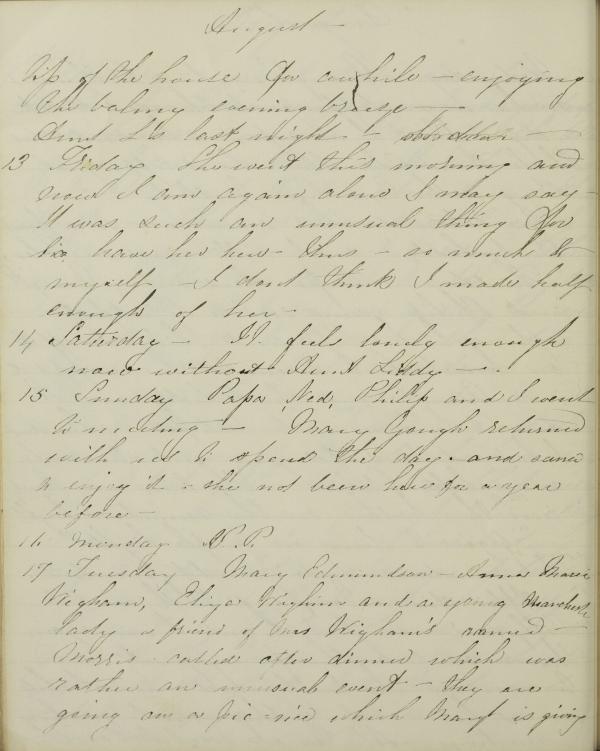 August —
top of the house for awhile — enjoying
the balmy evening breeze —
Aunt L's last night —
13 Friday She went this morning and
now I am again alone I may say —
It was such an unusual thing for
me to have her here — thus — so much to
myself — I dont think I made half
enough of her —
14 Saturday — It feels lonely enough
now without Aunt Liddy —
15 Sunday Papa, Ned, Philip and I went
to meeting — Mary Gough returned
with us to spend the day — and seemed
to enjoy it — she not been here for a year
before —
16 Monday N.P.
17 Tuesday Mary Edmundson — Anna Maria
Wigham, Eliza Wigham and a young Manchester
lady a friend of Mrs Wigham's named —
Morris called after dinner which was
rather an unusual event — they are
going on a pic-nic which Mary is giving